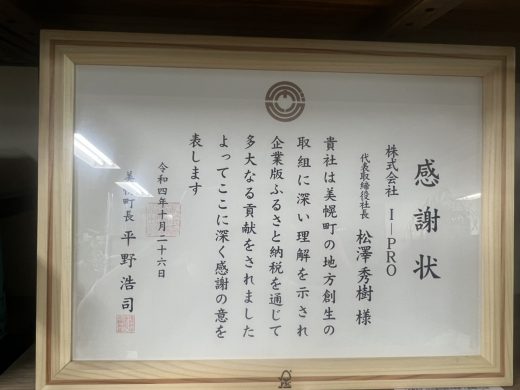 感謝状
株式会社 I―PRO
代表取締役社長 松澤秀樹様
貴社は美幌町の地方創生の
取組に深い理解を示され
企業版ふるさと納税を通じて
多大なる貢献をされました
よってここに深く感謝の意を
表します
令和四年十月二十六日
美幌町長 平野浩司